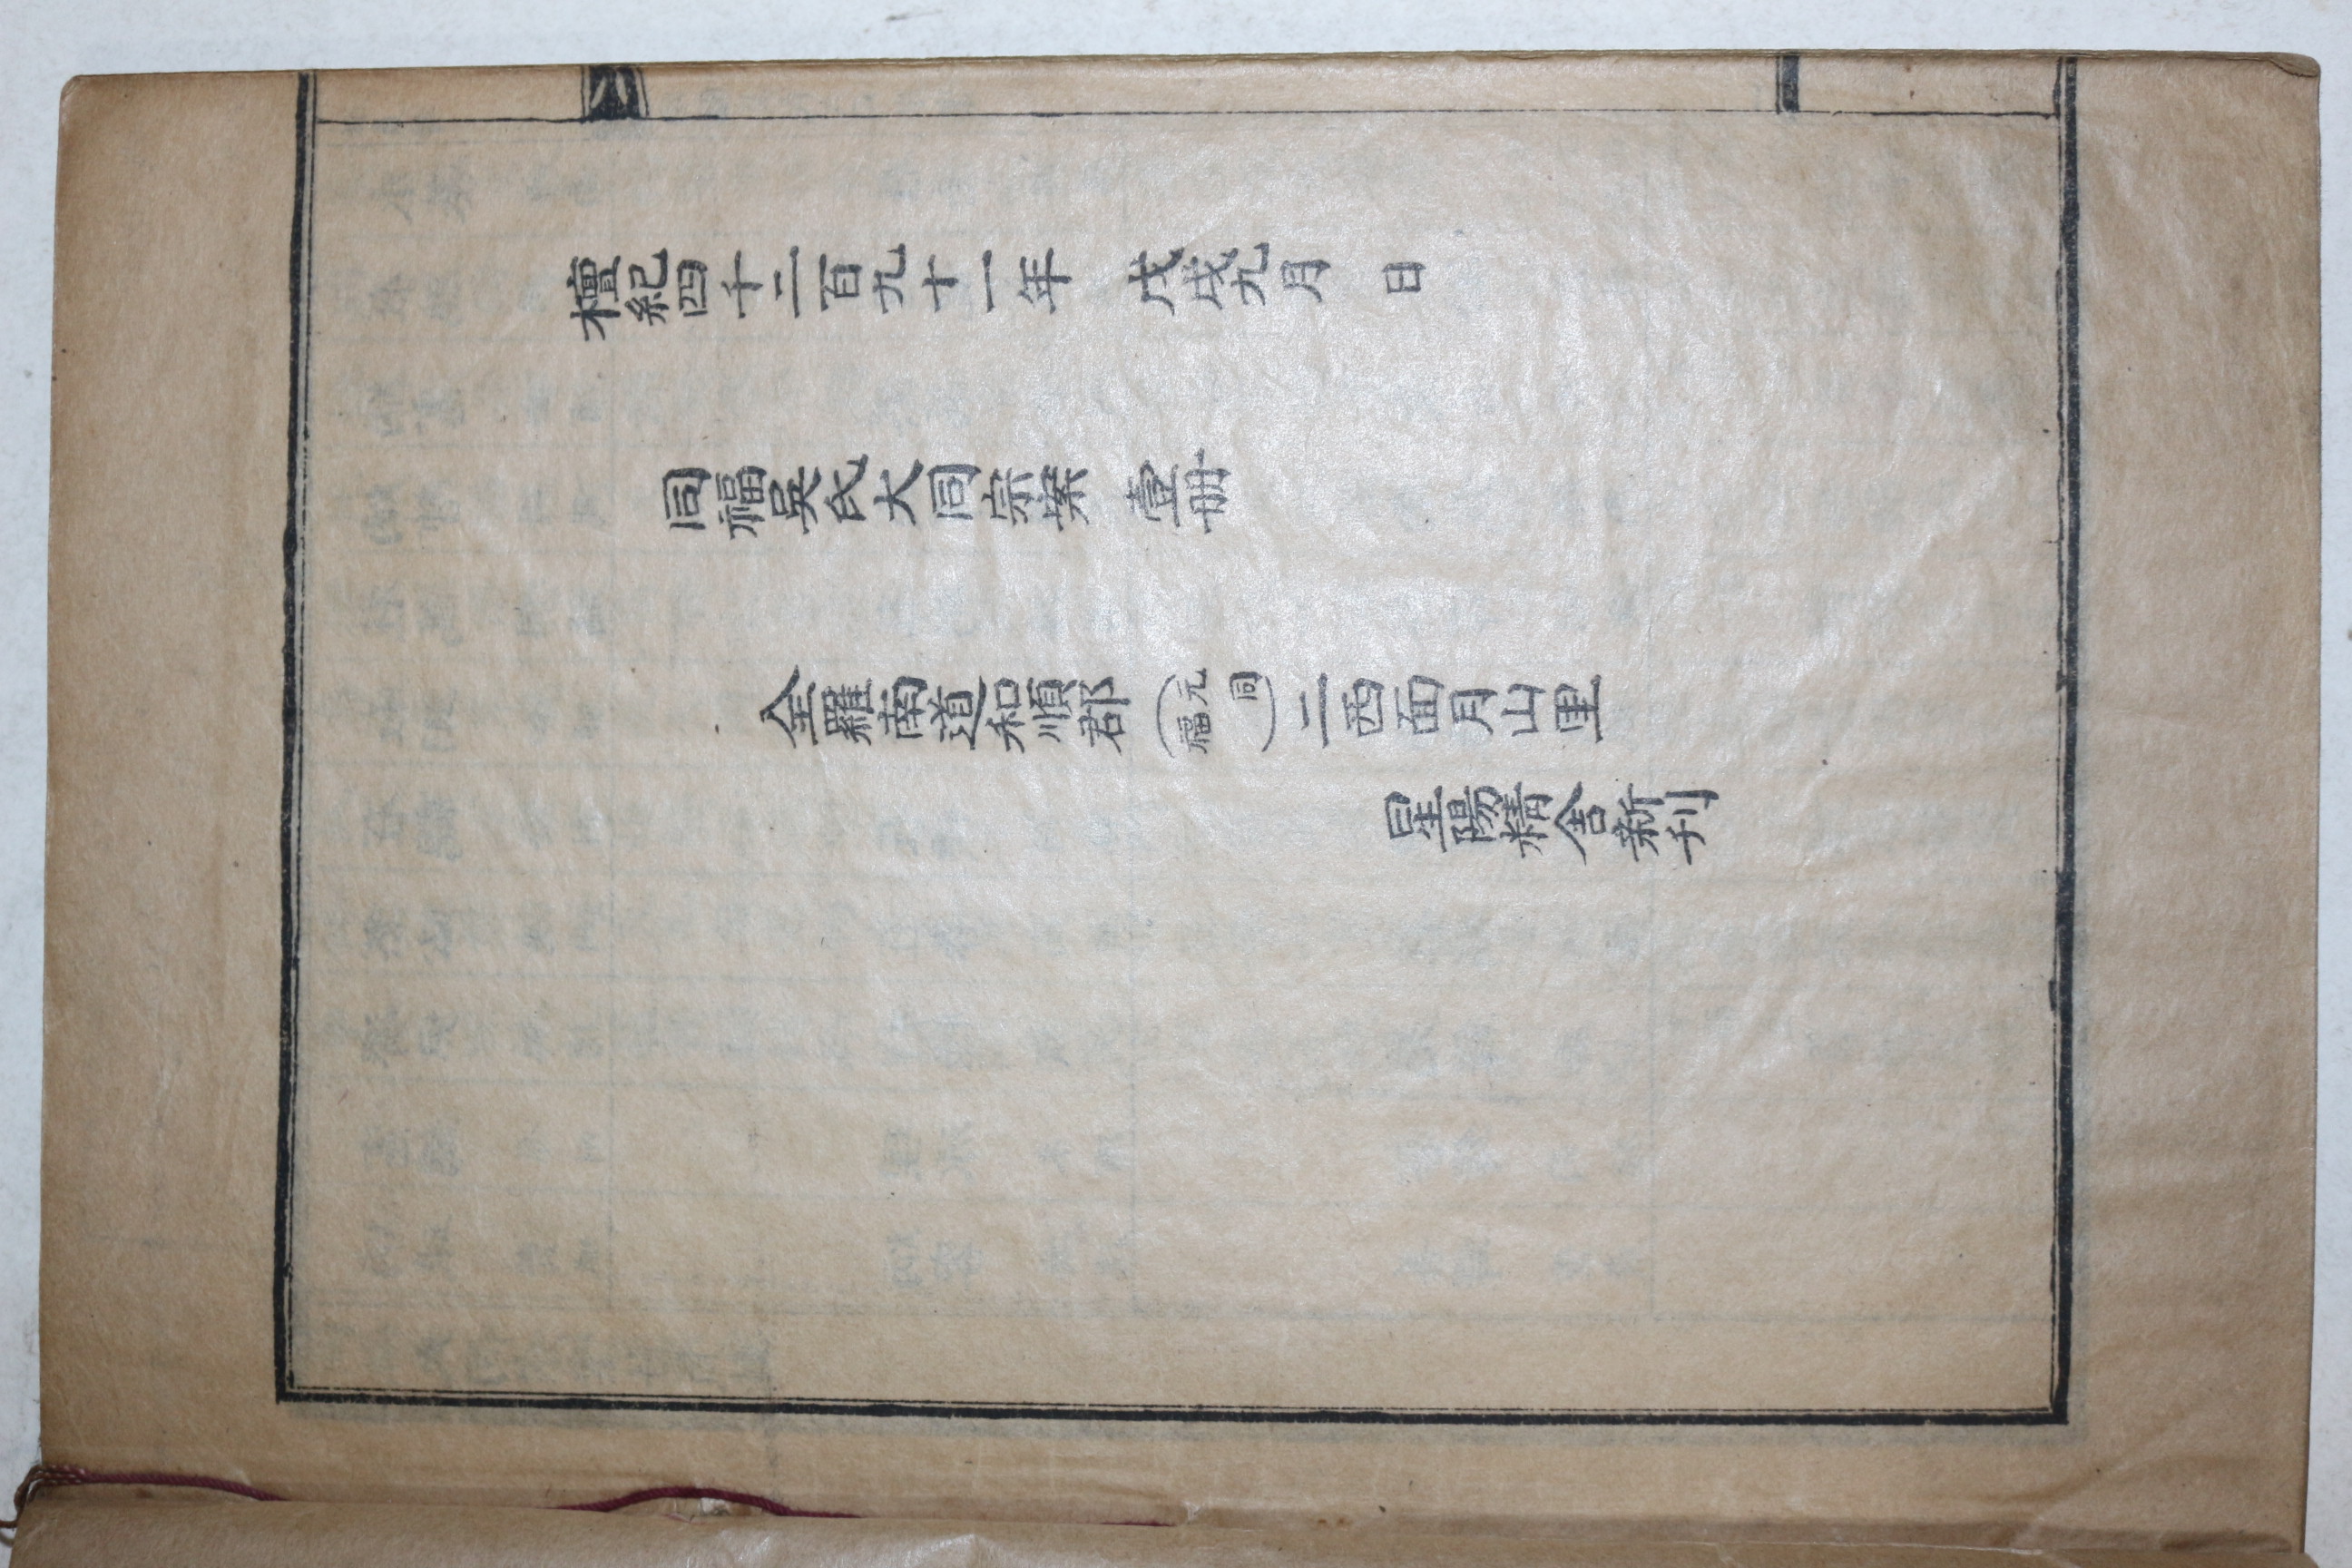 檀紀四千二百九十一年 戊戌九月 日
同福吳氏大同宗案 壹冊
全羅南道和順郡(元同福)二西面月山里
星陽精舍新刊